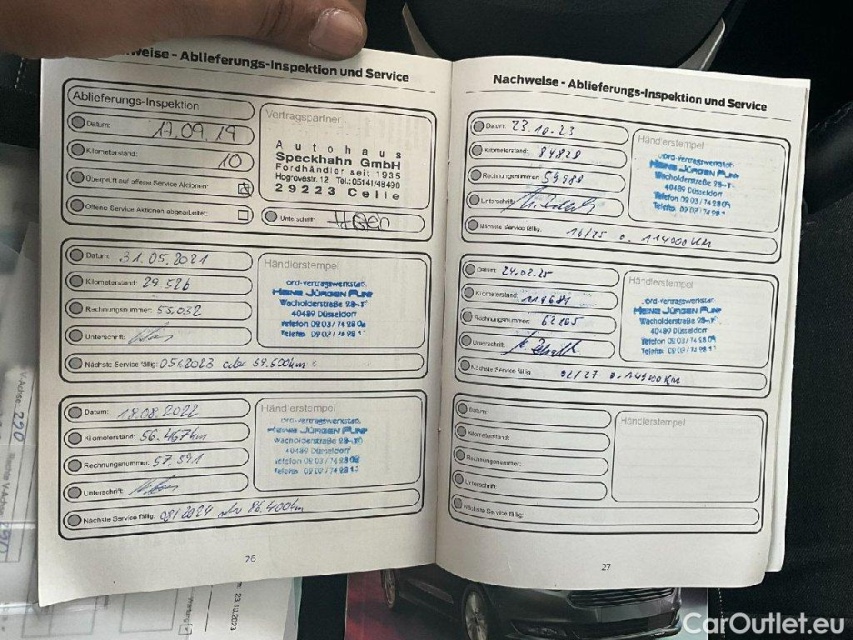 weise - Ablieferungs-Inspektion und Service
Ablieferungs-Inspektion
Datum: 17.09.19
Kilometerstand: 10
Überprüft auf offene Service Aktionen:
Offene Service Aktionen abgearbeitet:
Vertragspartner
Autohaus
Speckhahn GmbH
Fordhändler seit 1935
Hogrevestr. 12 Tel.: 05141/48490
29223 Celle
Unterschrift:
Datum: 31.05.2021
Kilometerstand: 29.526
Rechnungsnummer: 55.032
Unterschrift:
Nächste Service fällig: 05/2023 oder 59.500km
Händlerstempel
ord-Vertragswerkstat
Heinz Jürgen
Wacholderstraße
40489 Düsseldorf
Telefon
Telefax
Datum: 18.08.2022
Kilometerstand: 56.467km
Rechnungsnummer: 57.391
Unterschrift:
Nächste Service fällig: 08/2024 oder 86.400km
Händlerstempel
ord-Vertragswerkstat
Heinz Jürgen
Wacholderstraße
40489 Düsseldorf
Telefon
Telefax
26
Nachweise - Ablieferungs-Inspektion und Service
Datum: 23.10.23
Kilometerstand: 84828
Rechnungsnummer: 59988
Unterschrift:
Nächste Service fällig: 10/25 o. 114900 KM
Händlerstempel
ord-Vertragswerkstat
Heinz Jürgen
Wacholderstraße
40489 Düsseldorf
Telefon
Telefax
Datum: 24.02.25
Kilometerstand:
Rechnungsnummer:
Unterschrift:
Nächste Service fällig: 02/27
Händlerstempel
ord-Vertragswerkstat
Heinz Jürgen
Wacholderstraße
40489 Düsseldorf
Telefon
Telefax
Datum:
Kilometerstand:
Rechnungsnummer:
Unterschrift:
Nächste Service fällig:
Händlerstempel
27
23.10.2023
CarOutlet.eu